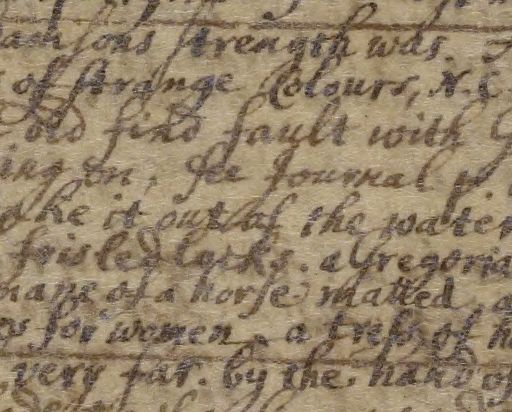 Samsons strength was
of strange Colours, N.C.
old find fault with
ing on, see Journal p.
oke it out of the water
frisled locks. a Gregoria
mane of a horse matted
for women. a tress of h
very far. by the hand of